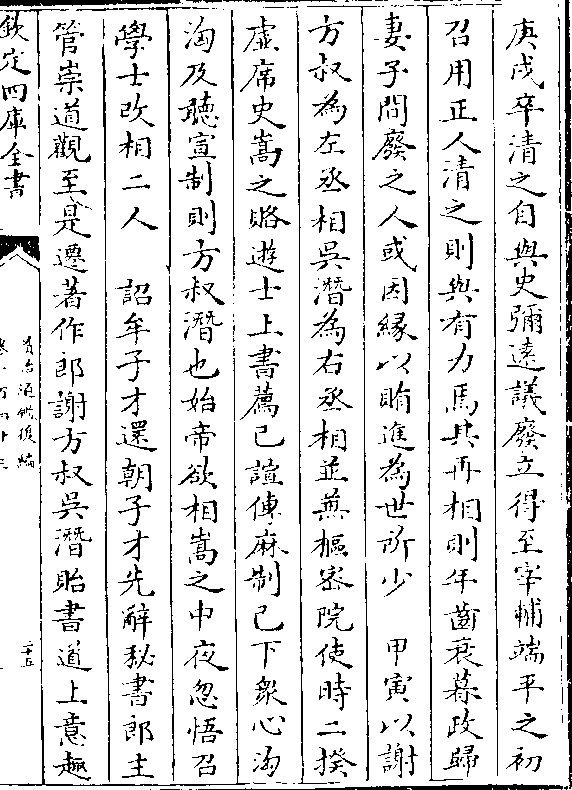 庚戌卒清之自與史彌遠議廢立得至宰輔端平之初
召用正人清之則與有力焉其再相則年齒衰暮政歸
妻子間廢之人或因緣以賄進為世所少　甲寅以謝
方叔為左丞相吳潛為右丞相並兼樞密院使時二揆
虛席史嵩之賂遊士上書薦己諠傳麻制已下衆心洶
洶及聽宣制則方叔潛也始帝欲相嵩之中夜忽悟召
學士改相二人　詔牟子才還朝子才先辭秘書郎主
管崇道觀至是遷著作郎謝方叔吳潛貽書道上意趣
欽定四庫全書
資治通鑑後編
二十五